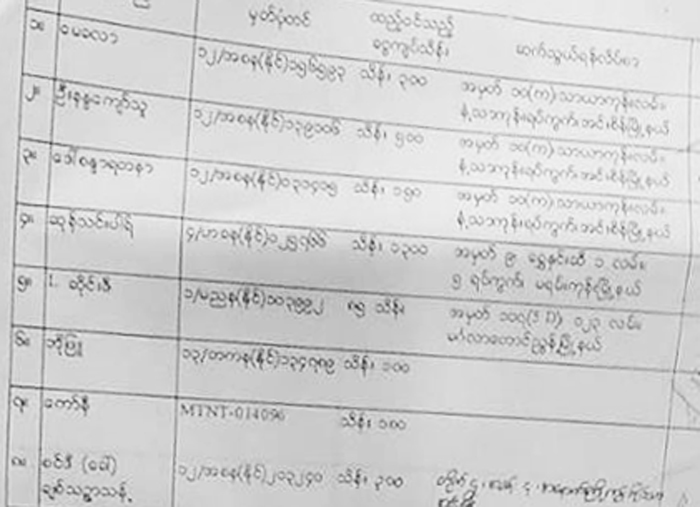 မှတ်ပုံတင် ထည့်ဝင်သည့် ဆက်သွယ်ရန်လိပ်စာ
ငွေကျပ်သိန်း
၁။ မေလော ၁၂/အစန(နိုင်)၁၅၆၅၉၃ သိန်း ၃၀၀ အမှတ် ၁၀(က) သာယာကုန်းလမ်း၊
နံ့သာကုန်းရပ်ကွက်၊ အင်းစိန်မြို့နယ်
၂။ ဦးနန္ဒကျော်သူ ၁၂/အစန(နိုင်)၁၃၉၁၀၆ သိန်း ၅၀၀ အမှတ် ၁၀(က) သာယာကုန်းလမ်း၊
နံ့သာကုန်းရပ်ကွက်၊ အင်းစိန်မြို့နယ်
၃။ ဒေါ်စန္ဒာရတနာ ၁၂/အစန(နိုင်)၀၃၁၄၁၅ သိန်း ၁၅၀ အမှတ် ၁၀(က) သာယာကုန်းလမ်း၊
နံ့သာကုန်းရပ်ကွက်၊ အင်းစိန်မြို့နယ်
၄။ ဆုန်သင်းပါရ် ၄/ဟခန(နိုင်)၀၂၅၇၆၆ သိန်း ၁၃၀၀ အမှတ် ၉ ရွှေနှင်းဆီ ၁ လမ်း၊
၅ ရပ်ကွက်၊ မရမ်းကုန်းမြို့နယ်
၅။ L. ဆိုင်းဇီ ၁/မညန(နိုင်)၁၀၃၅၉၂ ၈၅ သိန်း အမှတ် ၁၀၇(5 D) ၀၂၃ လမ်း၊
မင်္ဂလာတောင်ညွန့်မြို့နယ်
၆။ ဘိုဖြူ ၁၃/တကန(နိုင်)၁၃၄၇၈၉ သိန်း ၁၀၀
၇။ ကော်နီ MTNT-014096 သိန်း ၁၀၀
၈။ စင်ဒီ (ခေါ်) ၁၂/အစန(နိုင်)၂၁၃၂၄၀ သိန်း ၃၀၀
ချစ်သဥ္ဇာသန့်